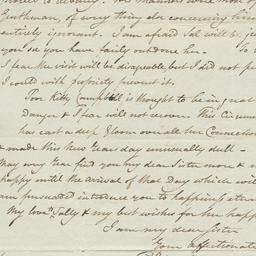 Gentleman, of every thing else concerning him
entirely ignorant. I am afraid Sal will be
you on you have fairly outdone her. To
I fear the visit will be disagreeable but I did not
I could with propriety prevent it.
Poor Kitty Campbell is thought to be in great
Danger & I fear will not recover. This Circum
has cast a deep Gloom over all her Connection
& made this New Years day unusually dull –
May every Year find you my dear Sister more &
happy until the arrival of that Day which will
I am persuaded introduce you to happiness etern
My love to Sally & my best wishes for her happ
I am my dear Sister
Your affectionate